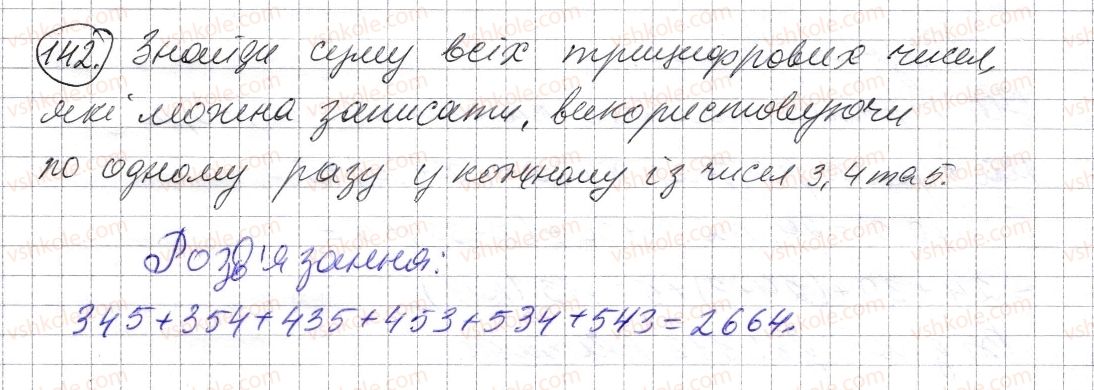 142. Знайди суму всіх трицифрових чисел,
які можна записати, використовуючи
по одному разу у кожному із чисел 3, 4 та 5.
Розв'язання:
345+354+435+453+534+543=2664.